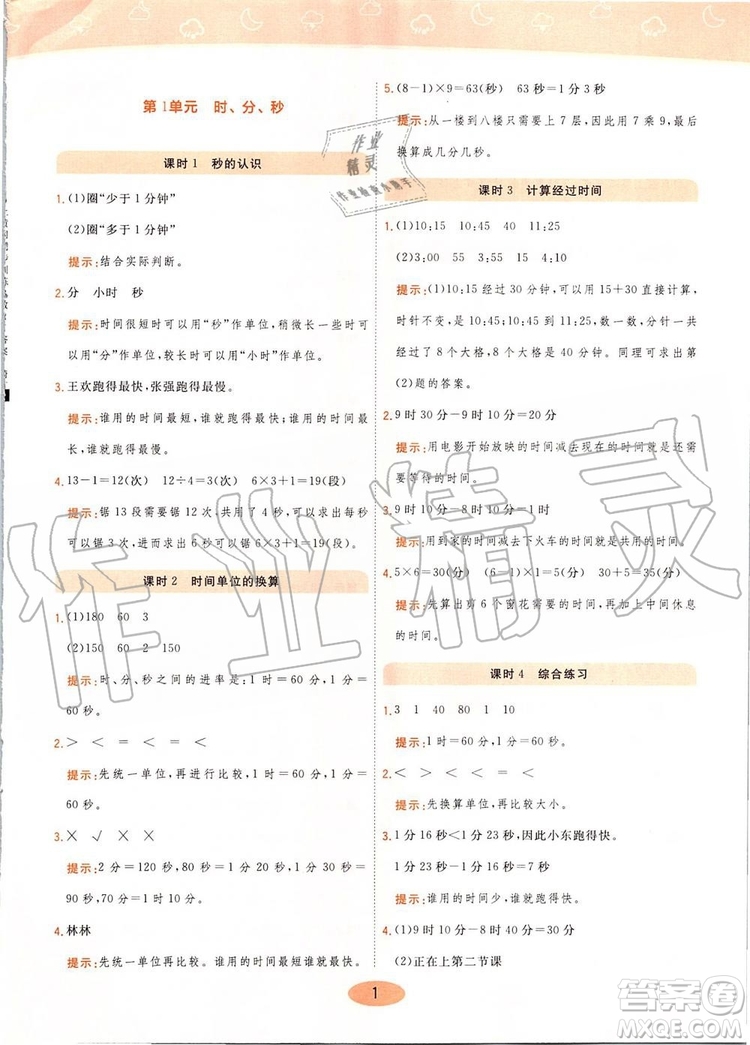 第1单元 时、分、秒
课时1 秒的认识
1.(1)圈“少于1分钟”
(2)圈“多于1分钟”
提示:结合实际判断。
2.分 小时 秒
提示:时间很短时可以用“秒”作单位,稍微长一些可以用“分”作单位,较长时间可以用“小时”作单位。
3.王欢跑得最快,张强跑得最慢。
提示:谁用的时间最短,谁就跑得最快;谁用的时间最长,谁就跑得最慢。
4.13-1=12(次) 12÷4=3(次) 6×3+1=19(段)
提示:锯13段需要锯12次,共用了4秒,可以求出每秒可以锯3次,进而求出6秒可以锯6×3+1=19(段)。
课时2 时间单位的换算
1.(1)180 60 3
(2)150 60 2 150
提示:时、分、秒之间的进率是:1时=60分,1分=60秒。
2.> < = < = <
提示:先统一单位,再进行比较,1时=60分,1分=60秒。
3.× √ × ×
提示:2分=120秒,80秒=1分20秒,1分30秒=90秒,9时10分-8时=1时10分。
4.林林
提示:先统一单位再比较。谁用的时间最短谁就最快。
5.(8-1)×9=63(秒) 63秒=1分3秒
提示:从一楼到八楼只需要上7层,用7乘9,最后换算成几分几秒。
课时3 计算经过时间
1.(1)10:15 10:45 40 11:25
(2)3:00 55 3:55
提示:(1)10:15经过30分钟,可以用15+30直接计算,时针不变,是10:45;10:45到11:25,数一数,分针共经过8个大格,8个大格是40分钟。同理可求出第(2)题的答案。
2.9时30分-9时10分=20分
提示:用电影开始放映的时间减去现在的时间就是需要等待的时间。
3.9时10分-8时10分=1时
提示:用到家的时间减去下火车的时间就是所求的时间。
4.5×6=30(分) 30+5=35(分)
提示:先算出剪6个窗花的时间,再加上中间休息的时间。
课时4 综合练习
1.3 1 40 80 1 10
提示:1时=60分,1分=60秒。
2.< < > < =
提示:先换算单位,再比较大小。
3.1分16秒<1分23秒,因此小东跑得快。
1分23秒-1分16秒=7秒
提示:谁用的时间少,谁就跑得快。
4.(1)9时10分-8时30分=40分
(2)正在上第二节课
1
作业精灵
作业精灵
作业检查小助手
答案圈
MXQE.COM